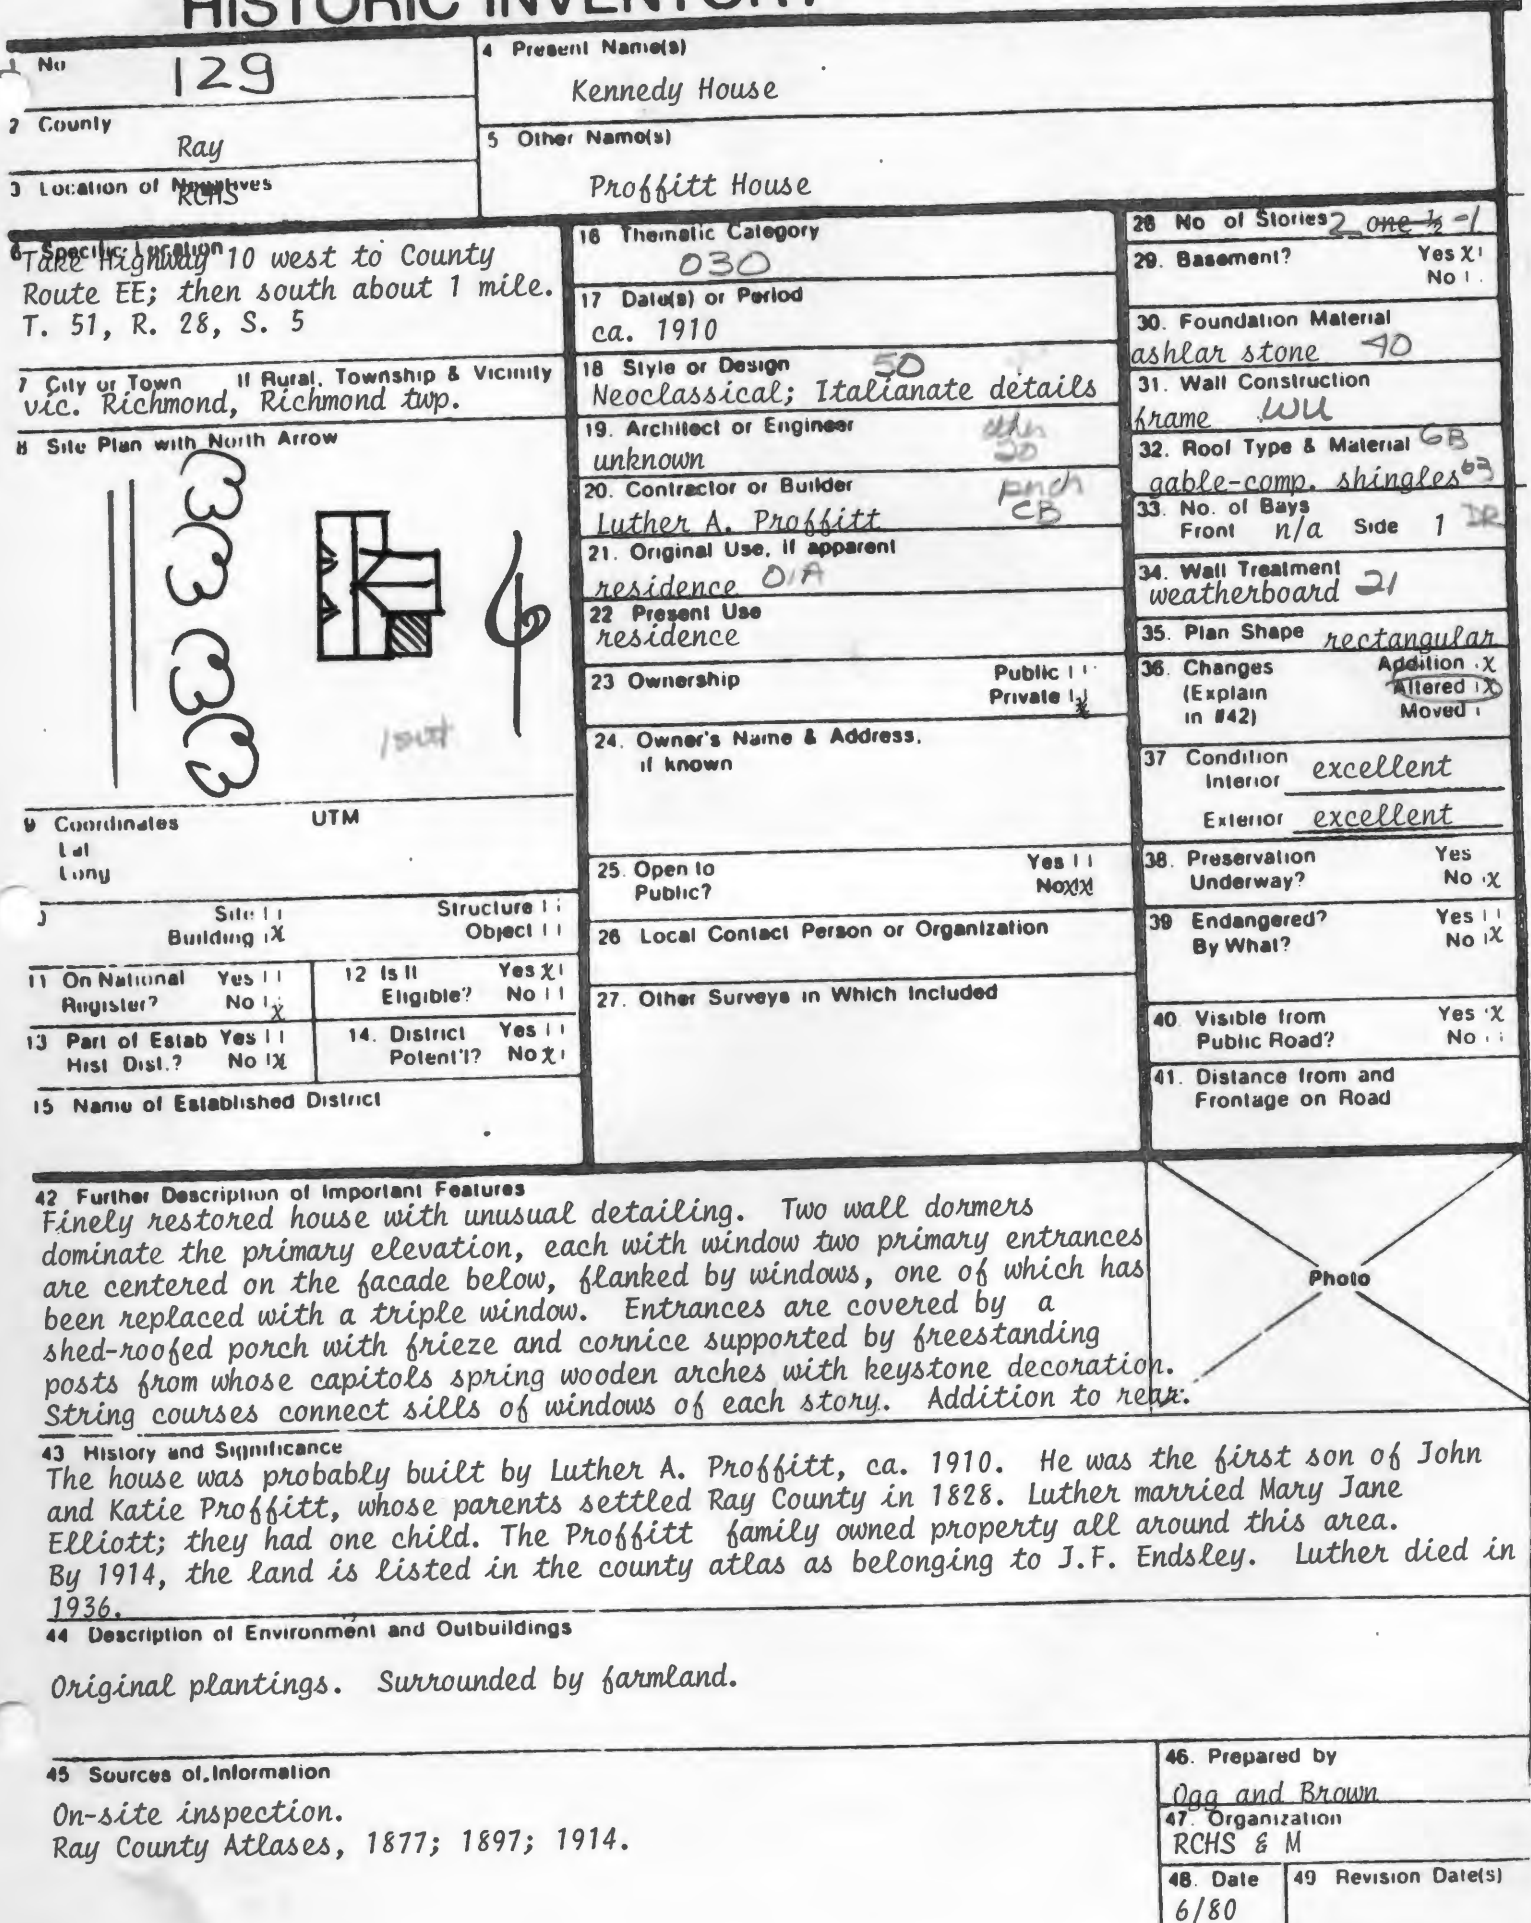 HISTORIC INVENTORY
1 No 129
2 County
Ray
3 Location of Negatives
RCHS
4 Present Name(s)
Kennedy House
5 Other Name(s)
Proffitt House
6 Specific Location
Take Highway 10 west to County
Route EE; then south about 1 mile.
T. 51, R. 28, S. 5
7 City or Town If Rural, Township & Vicinity
vic. Richmond, Richmond twp.
8 Site Plan with North Arrow
9 Coordinates UTM
Lat
Long
Site Structure
Building X Object
11 On National Register? Yes No X
12 Is It Eligible? Yes X No
13 Part of Estab Hist Dist.? Yes No X
14. District Potent'l? Yes No X
15 Name of Established District
16 Thematic Category
030
17 Date(s) or Period
ca. 1910
18 Style or Design 50
Neoclassical; Italianate details
19. Architect or Engineer
unknown 20
20. Contractor or Builder porch
Luther A. Proffitt CB
21. Original Use, if apparent
residence 01A
22 Present Use
residence
23 Ownership Public
Private X
24. Owner's Name & Address,
if known
25. Open to Yes
Public? No XX
26 Local Contact Person or Organization
27. Other Surveys in Which Included
28 No of Stories 2 one ½ -1
29. Basement? Yes X
No
30. Foundation Material
ashlar stone 40
31. Wall Construction
frame WU
32. Roof Type & Material GB
gable-comp. shingles 63
33. No. of Bays
Front n/a Side 1 DR
34. Wall Treatment
weatherboard 21
35. Plan Shape rectangular
36. Changes Addition X
(Explain Altered X
in #42) Moved
37 Condition
Interior excellent
Exterior excellent
38. Preservation Yes
Underway? No X
39 Endangered? Yes
By What? No X
40 Visible from Yes X
Public Road? No
41. Distance from and
Frontage on Road
42 Further Description of Important Features
Finely restored house with unusual detailing. Two wall dormers
dominate the primary elevation, each with window two primary entrances
are centered on the facade below, flanked by windows, one of which has
been replaced with a triple window. Entrances are covered by a
shed-roofed porch with frieze and cornice supported by freestanding
posts from whose capitols spring wooden arches with keystone decoration.
String courses connect sills of windows of each story. Addition to rear.
Photo
43 History and Significance
The house was probably built by Luther A. Proffitt, ca. 1910. He was the first son of John
and Katie Proffitt, whose parents settled Ray County in 1828. Luther married Mary Jane
Elliott; they had one child. The Proffitt family owned property all around this area.
By 1914, the land is listed in the county atlas as belonging to J.F. Endsley. Luther died in
1936.
44 Description of Environment and Outbuildings
Original plantings. Surrounded by farmland.
45 Sources of Information
On-site inspection.
Ray County Atlases, 1877; 1897; 1914.
46. Prepared by
Ogg and Brown
47. Organization
RCHS & M
48. Date
6/80
49 Revision Date(s)